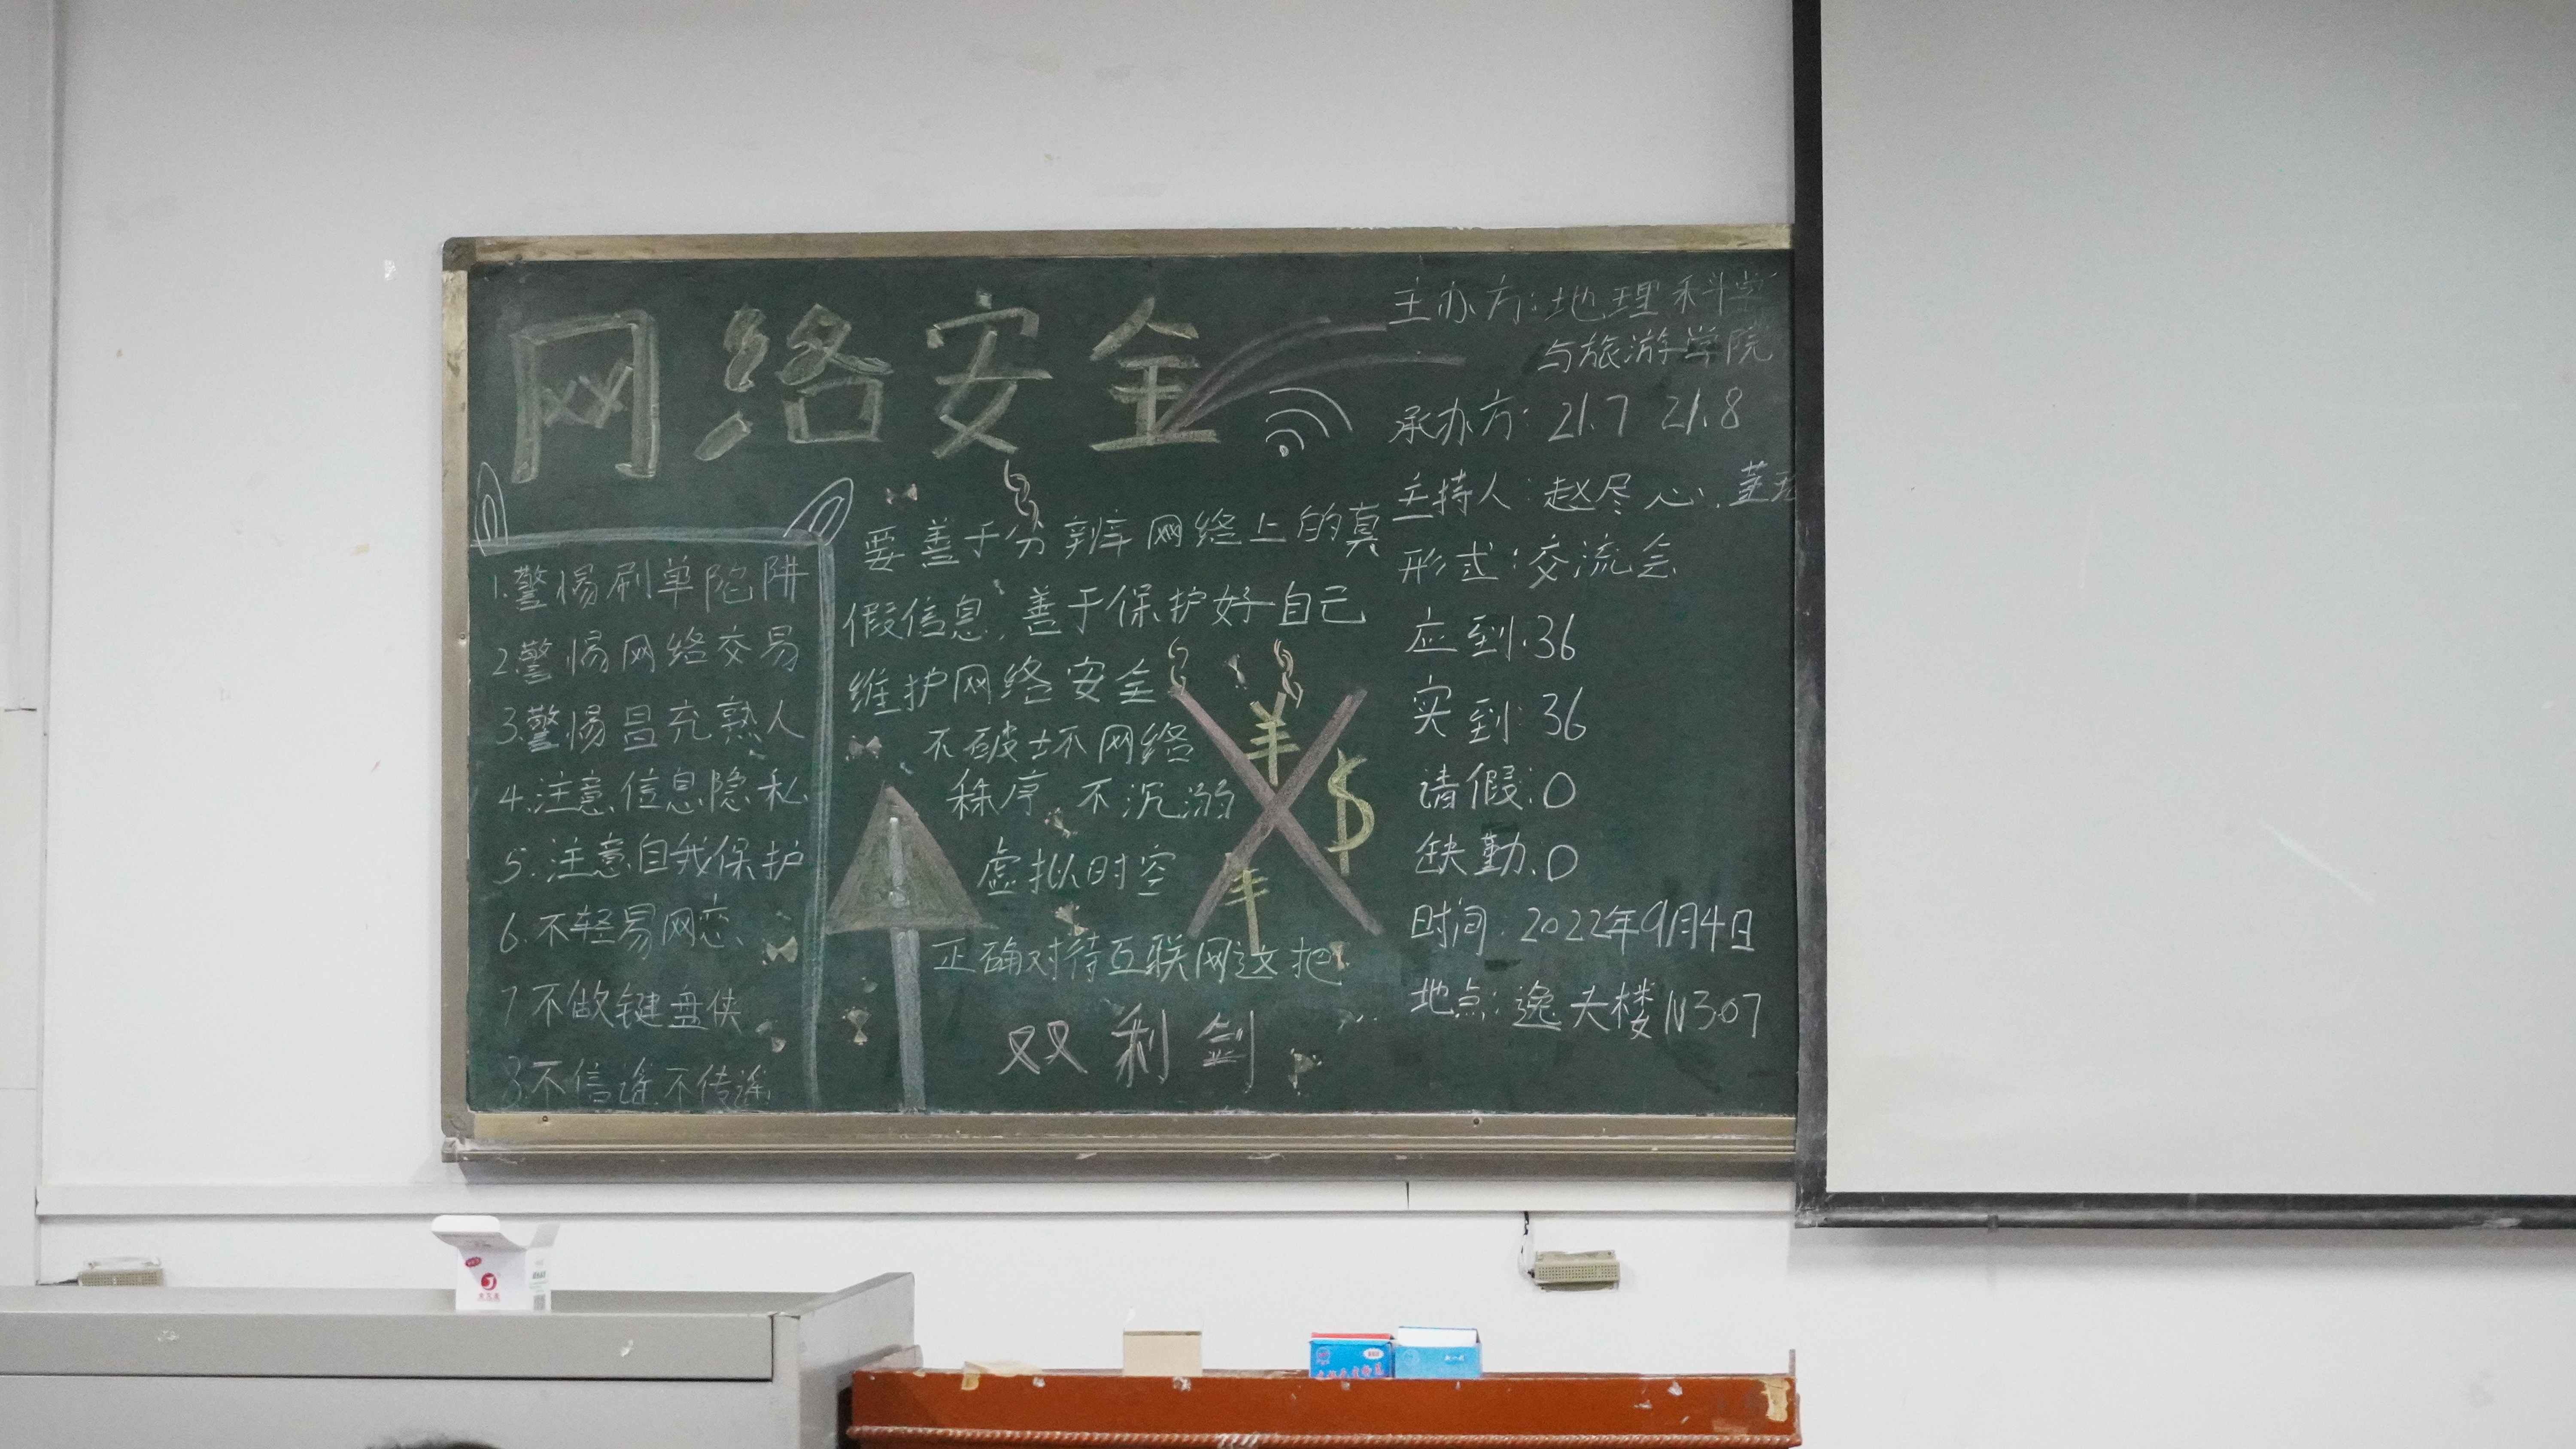 网络安全
1.警惕刷单陷阱
2.警惕网络交易
3.警惕冒充熟人
4.注意信息隐私
5.注意自我保护
6.不轻易网恋、
7不做键盘侠
8不信谣.不传谣.
要善于分辨网络上的真
假信息,善于保护好自己
维护网络安全
不破坏网络
秩序 不沉溺
虚拟时空
正确对待互联网这把
双利剑
¥
$
主办方:地理科学
与旅游学院
承办方:21.7 21.8
主持人:赵尽心.
形式:交流会
应到:36
实到:36
请假:0
缺勤:0
时间:2022年9月4日
地点:逸夫楼N307